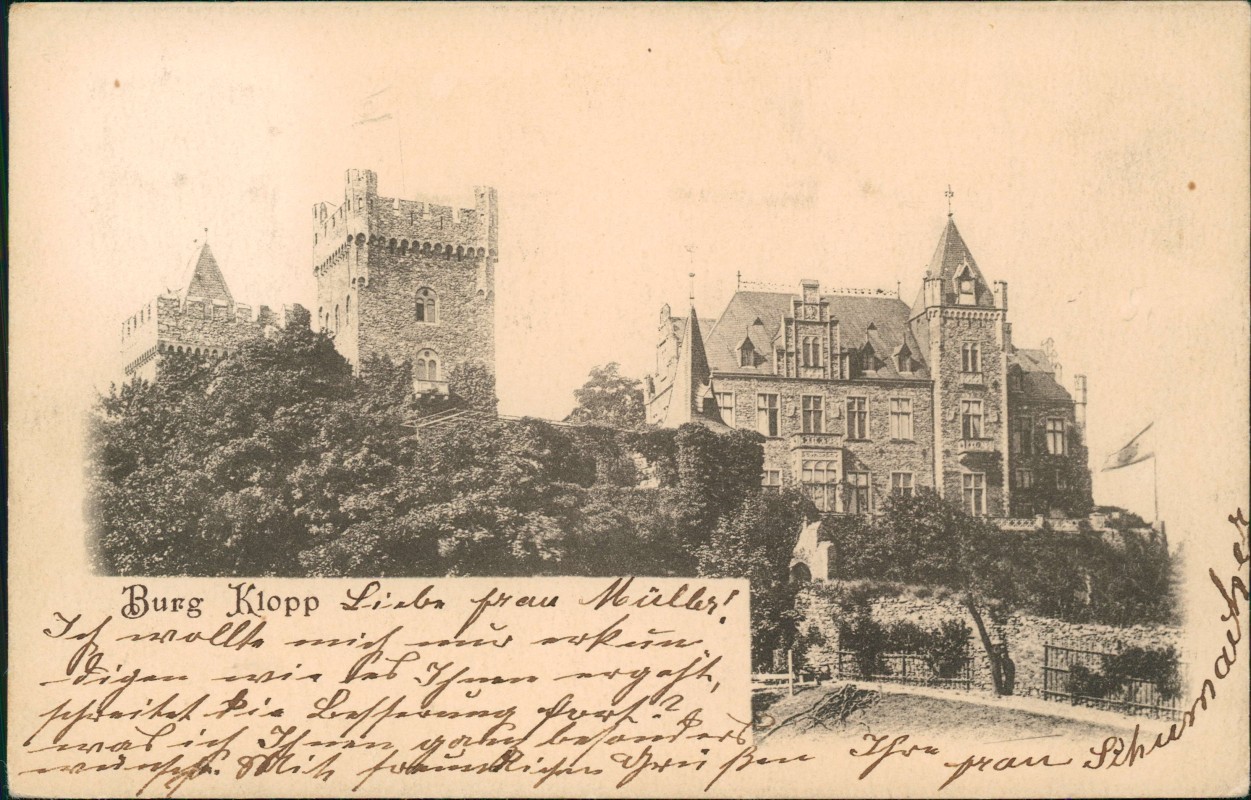 Burg Klopp Liebe frau Müller!
Ich wollte mich nur erkun
digen wie es Ihnen ergeht,
schreitet die Besserung fort?
was ich Ihnen ganz besonders
wünsche. Mit freundlichen Grüßen Ihre frau Schumacher